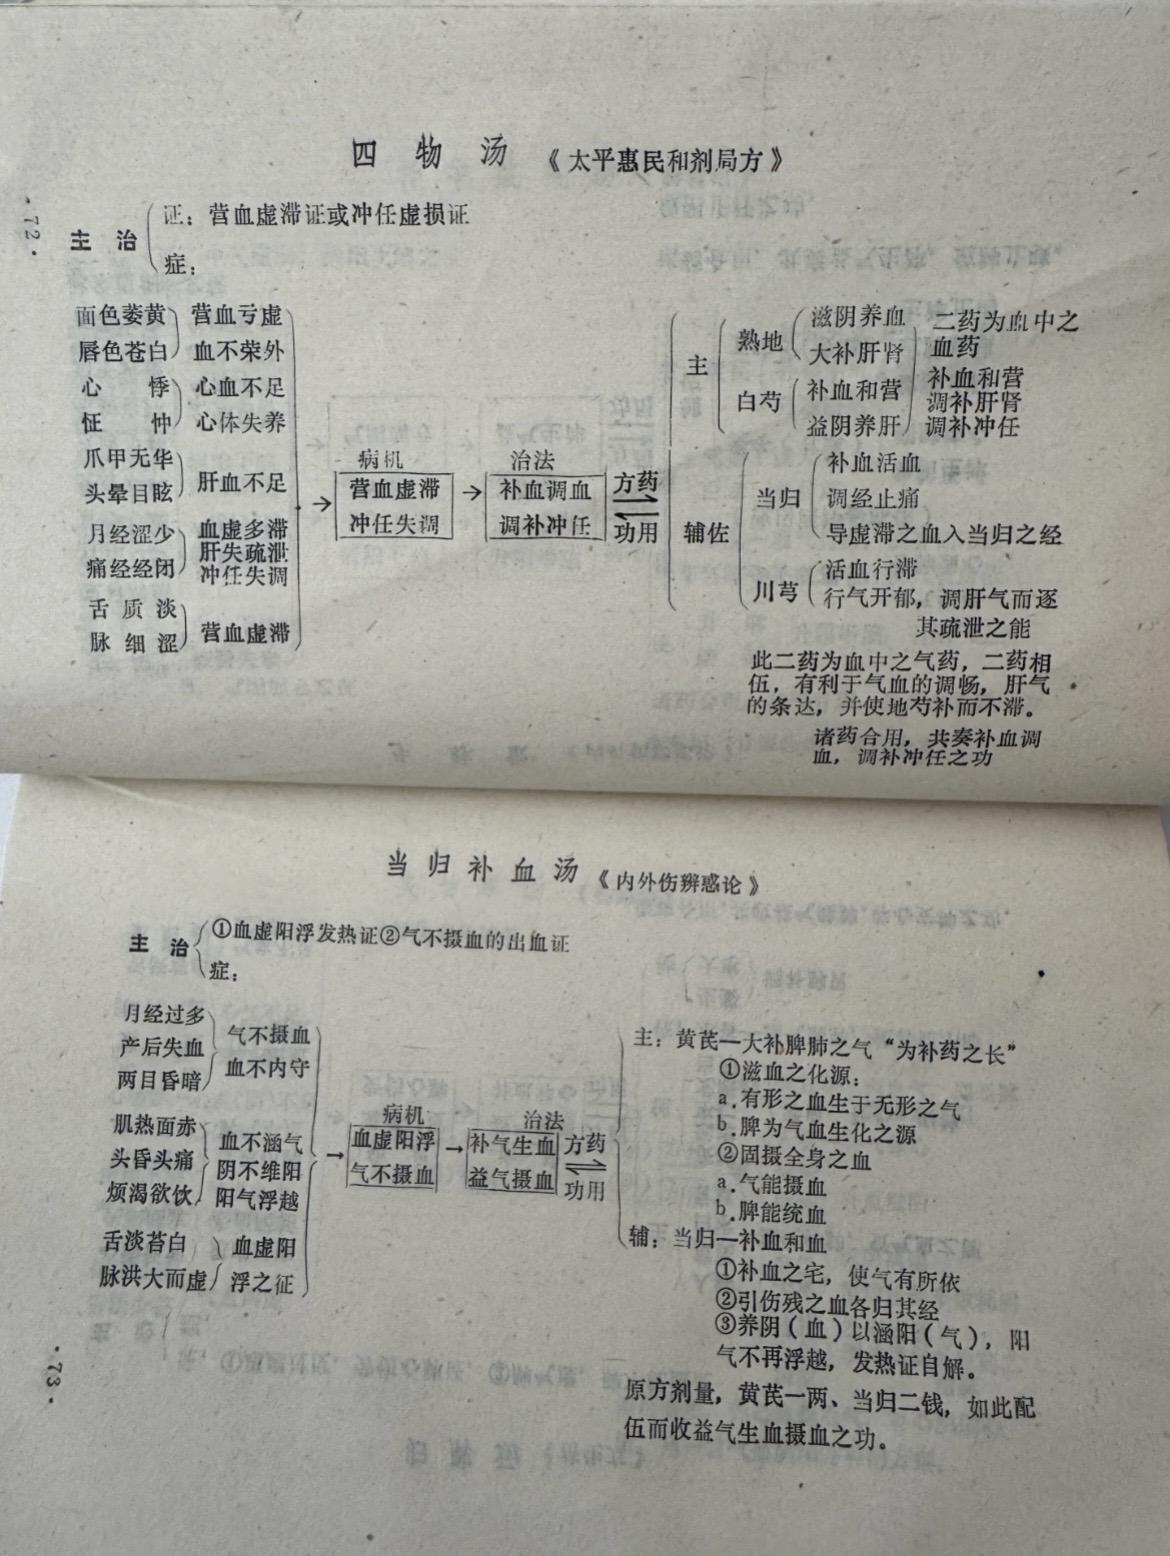 四物汤 《太平惠民和剂局方》
·72·
主治
证：营血虚滞证或冲任虚损证
症：
面色萎黄
唇色苍白
营血亏虚
血不荣外
心悸
怔忡
心血不足
心体失养
爪甲无华
头晕目眩
肝血不足
月经涩少
痛经经闭
血虚多滞
肝失疏泄
冲任失调
舌质淡
脉细涩
营血虚滞
→
病机
营血虚滞
冲任失调
→
治法
补血调血
调补冲任
方药
⇌
功用
主
熟地
滋阴养血
大补肝肾
白芍
补血和营
益阴养肝
二药为血中之
血药
补血和营
调补肝肾
调补冲任
辅佐
当归
补血活血
调经止痛
导虚滞之血入当归之经
川芎
活血行滞
行气开郁，调肝气而逐
其疏泄之能
此二药为血中之气药，二药相
伍，有利于气血的调畅，肝气
的条达，并使地芍补而不滞。
诸药合用，共奏补血调
血，调补冲任之功
当归补血汤 《内外伤辨惑论》
主治
①血虚阳浮发热证②气不摄血的出血证
症：
月经过多
产后失血
两目昏暗
气不摄血
血不内守
肌热面赤
头昏头痛
烦渴欲饮
血不涵气
阴不维阳
阳气浮越
舌淡苔白
脉洪大而虚
血虚阳
浮之征
→
病机
血虚阳浮
气不摄血
→
治法
补气生血
益气摄血
方药
⇌
功用
主：黄芪—大补脾肺之气“为补药之长”
①滋血之化源：
a.有形之血生于无形之气
b.脾为气血生化之源
②固摄全身之血
a.气能摄血
b.脾能统血
辅：当归—补血和血
①补血之宅，使气有所依
②引伤残之血各归其经
③养阴（血）以涵阳（气），阳
气不再浮越，发热证自解。
原方剂量，黄芪一两、当归二钱，如此配
伍而收益气生血摄血之功。
·73·